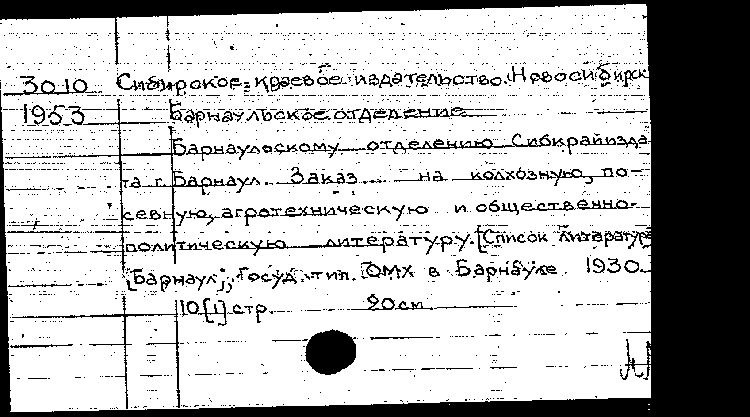 3010 Сибирское краевое издательство. Новосибирск
1953 Барнаульское отделение
Барнаульскому отделению Сибкрайизда
та г. Барнаул. Заказ... на колхозную, по-
севную, агротехническую и общественно-
политическую литературу. [Список литературы
[Барнаул], Госуд. тип. ОМХ в Барнауле 1930.
10[1] стр. 20см.